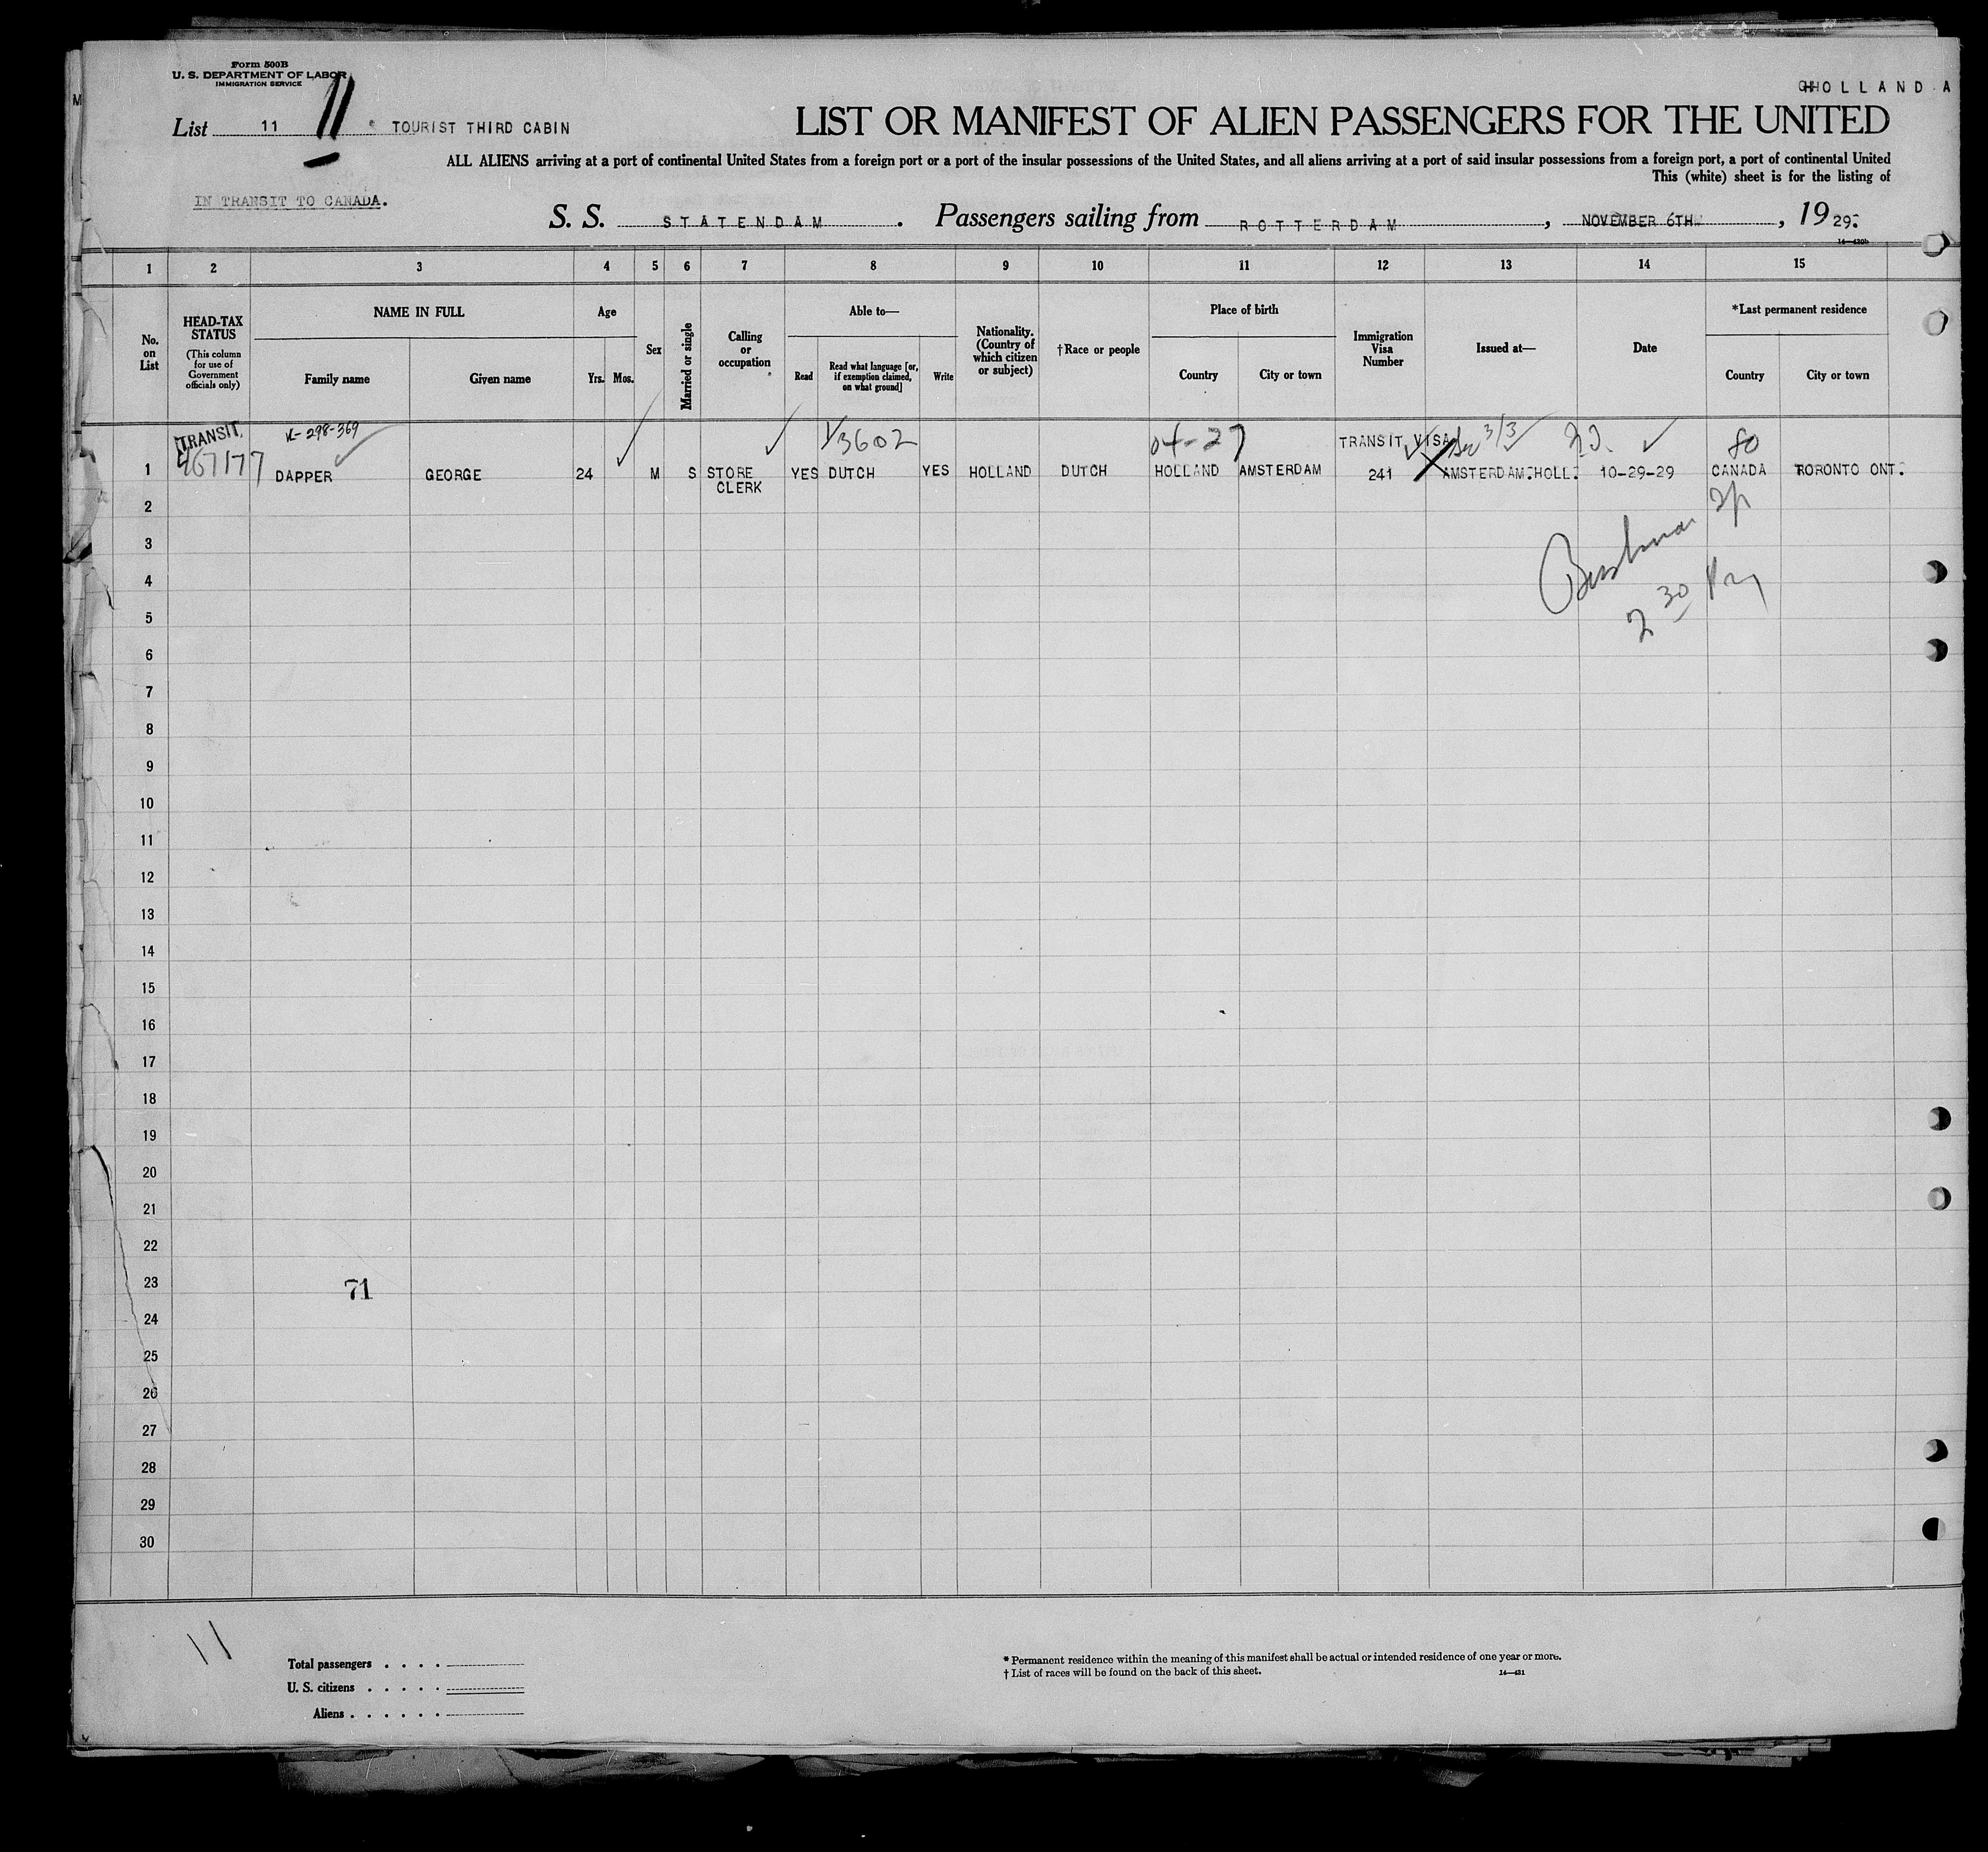 Form 500B
U. S. DEPARTMENT OF LABOR
IMMIGRATION SERVICE
HOLLAND A
List 11 11 TOURIST THIRD CABIN
LIST OR MANIFEST OF ALIEN PASSENGERS FOR THE UNITED
ALL ALIENS arriving at a port of continental United States from a foreign port or a port of the insular possessions of the United States, and all aliens arriving at a port of said insular possessions from a foreign port, a port of continental United
This (white) sheet is for the listing of
IN TRANSIT TO CANADA.
S. S. STATENDAM. Passengers sailing from ROTTERDAM, NOVEMBER 6TH, 1929.
14—430b
1 2 3 4 5 6 7 8 9 10 11 12 13 14 15
No. on List
HEAD-TAX STATUS
(This column for use of Government officials only)
NAME IN FULL
Family name
Given name
Age
Yrs.
Mos.
Sex
Married or single
Calling or occupation
Able to—
Read
Read what language [or, if exemption claimed, on what ground]
Write
Nationality. (Country of which citizen or subject)
†Race or people
Place of birth
Country
City or town
Immigration Visa Number
Issued at—
Date
*Last permanent residence
Country
City or town
TRANSIT K-298-369 13602 04-27 TRANSIT VISA 3/3 80
1 467177 DAPPER GEORGE 24 M S STORE YES DUTCH YES HOLLAND DUTCH HOLLAND AMSTERDAM 241 AMSTERDAM.HOLL. 10-29-29 CANADA TORONTO ONT.
CLERK
2
3
4
5
2 30
6
7
8
9
10
11
12
13
14
15
16
17
18
19
20
21
22
23
71
24
25
26
27
28
29
30
11
Total passengers . . . .
U. S. citizens . . . . .
Aliens . . . . . .
* Permanent residence within the meaning of this manifest shall be actual or intended residence of one year or more.
† List of races will be found on the back of this sheet.
14—431